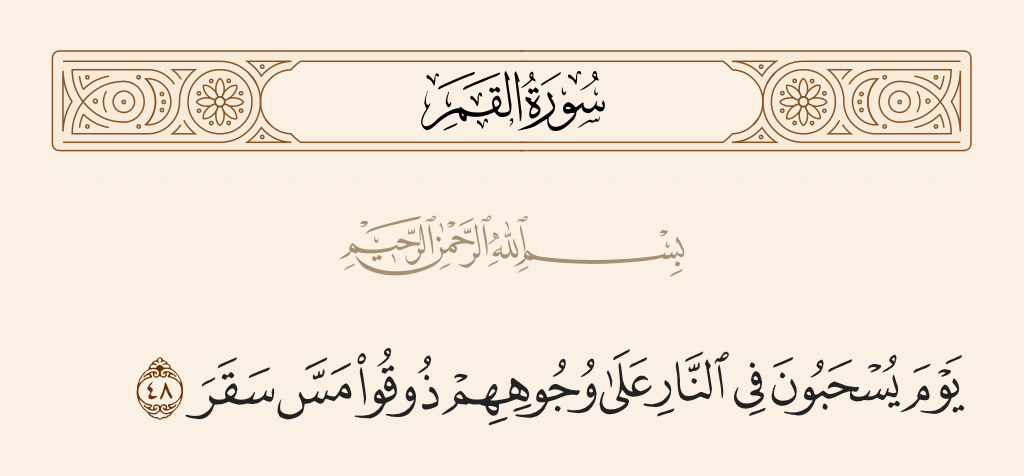 سُورَةُ القَمَرِ
بِسْمِ ٱللَّهِ ٱلرَّحْمَٰنِ ٱلرَّحِيمِ
يَوْمَ يُسْحَبُونَ فِي ٱلنَّارِ عَلَىٰ وُجُوهِهِمْ ذُوقُوا۟ مَسَّ سَقَرَ ٤٨